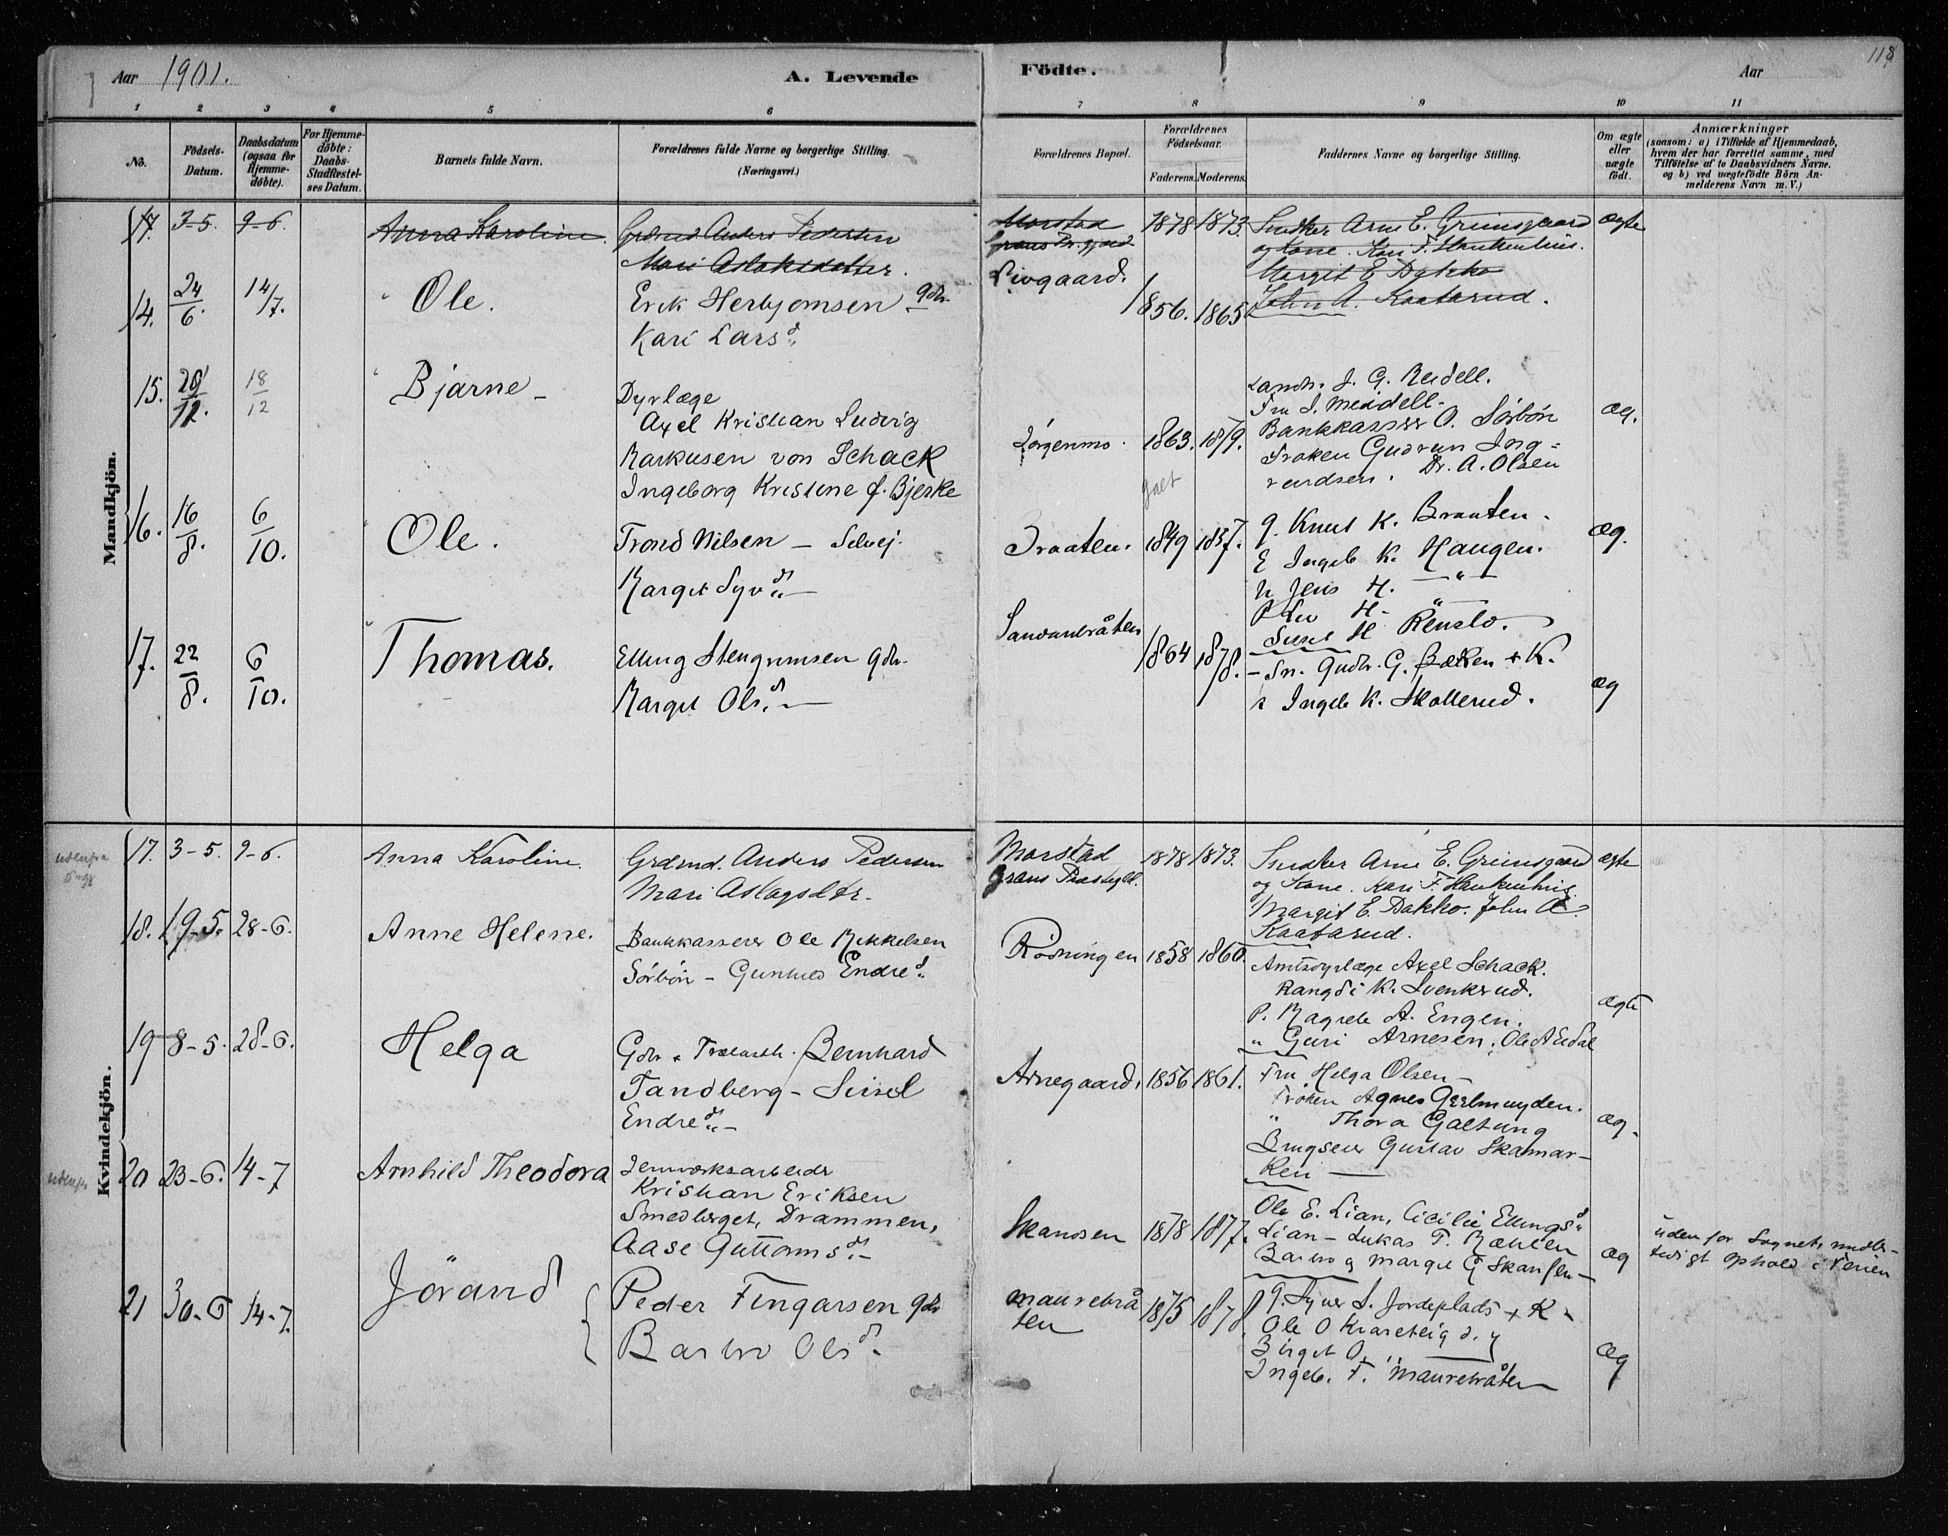 Aar 1901.
A. Levende
Födte.
Aar
118
1 2 3 4 5 6 7 8 9 10 11
No.
Födsels-Datum.
Daabsdatum (ogsaa for Hjemme-döbte).
For Hjemme-döbte: Daabs-Stadfæstel-ses Datum.
Barnets fulde Navn.
Forældrenes fulde Navne og borgerlige Stilling. (Næringsvei.)
Forældrenes Bopæl.
Forældrenes Födselsaar.
Faderens. Moderens.
Faddernes Navne og borgerlige Stilling.
Om ægte eller uægte födt.
Anmærkninger
(saasom: a) i Tilfælde af Hjemmedaab,
hvem der har forrettet samme, med
Tilföielse af to Daabsvidners Navne.
og b) ved uægtefödte Börn An-
melderens Navn m. V.)
Mandkjön.
17. 3-5. 9-6. Anna Karoline. Grdmd Anders Pedersen
Mari Aslaksdatter.
Morstad
1878 1873. Snedker Arne E. Grimsgaard
og Kone. Kari F. Haukenhus.
Margit E Dokko
John A. Kaatarud.
ægte
14. 24/6. 14/7. Ole. Erik Herbjørnsen gbr.
Kari Larsd.
1856. 1865
15. 20/12. 18/12 Bjarne
Dyrlæge
Axel Kristian Ludvig
Markusen von Schack
Ingeborg Kristine f. Bjerke
Jørgenmo. 1863. 1879.
J. G. Meidell.
Fru J. Meidell
Bankkasserer O. Sörbön
Frøken Gudrun Ing-
Dr. A. Olsen
æg.
16. 16/8. 6/10. Ole. Trond Nilsen – Selvej.
Margit Syvd.
Braaten. 1849 1857.
G. Knut K. Braaten.
E Ingeb K. Haugen.
Jens H. – " –
Liv H. "
Sissel H Renslo.
Æg.
17. 22/8. 6/10. Thomas. Elling Stengrimsen gbr.
Margit Olsd.
1864 1878.
Gudbr. G. Bækken + K.
Ingeb K. Skollerud.
Æg
Kvindekjön.
17. 3-5. 9-6. Anna Karoline. Grdmd. Anders Pedersen
Mari Aslagsdtr.
Morstad
Grans Præstegld.
1878 1873.
Snedker Arne E. Grimsgaard
og Kone. Kari F. Haukenhus
Margit E. Dokko. John A.
Kaatarud.
ægte
18. 19-5. 28-6. Anne Helene. Bankkasserer Ole Mikkelsen
Sörbön – Gunhild Endred.
Rödningen 1858 1860.
Amtsdyrlæge Axel Schack.
Rangdi K. Svenkerud.
P. Magrete A. Engen.
" Guri Arnesen, Ole A Lidal
ægte
19 8-5. 28-6. Helga
Gbr. & Trælasth. Bernhard
Tandberg – Sissel
Endred.
Arnegaard. 1856 1861.
Fru Helga Olsen
Frøken Agnes Geelmuyden.
" Thora Galtung
Brugseier Gustav Skamar-
ken
æg.
20 23-6. 14-7 Arnhild Theodora
Jernverksarbeider
Kristian Eriksen
Smedberget, Drammen,
Aase Guttormsd.
Skansen 1878 1877.
Ole E. Lian, Cicilie Ellingsd
Lian – Lukas T. Mæhlen
Barbro og Margit G Skansen
æg
uden for Sognet, midler-
tidigt Ophold i Ferien
21 30-6 14-7. Jörand
Peder Fingarsen gbr
Barbro Olsd.
Mauretrå
ten
1875 1878.
G. Syver S. Jordeplads + K
Ole O
Birgit O.
Ingeb. F. Mauretråten
Æg